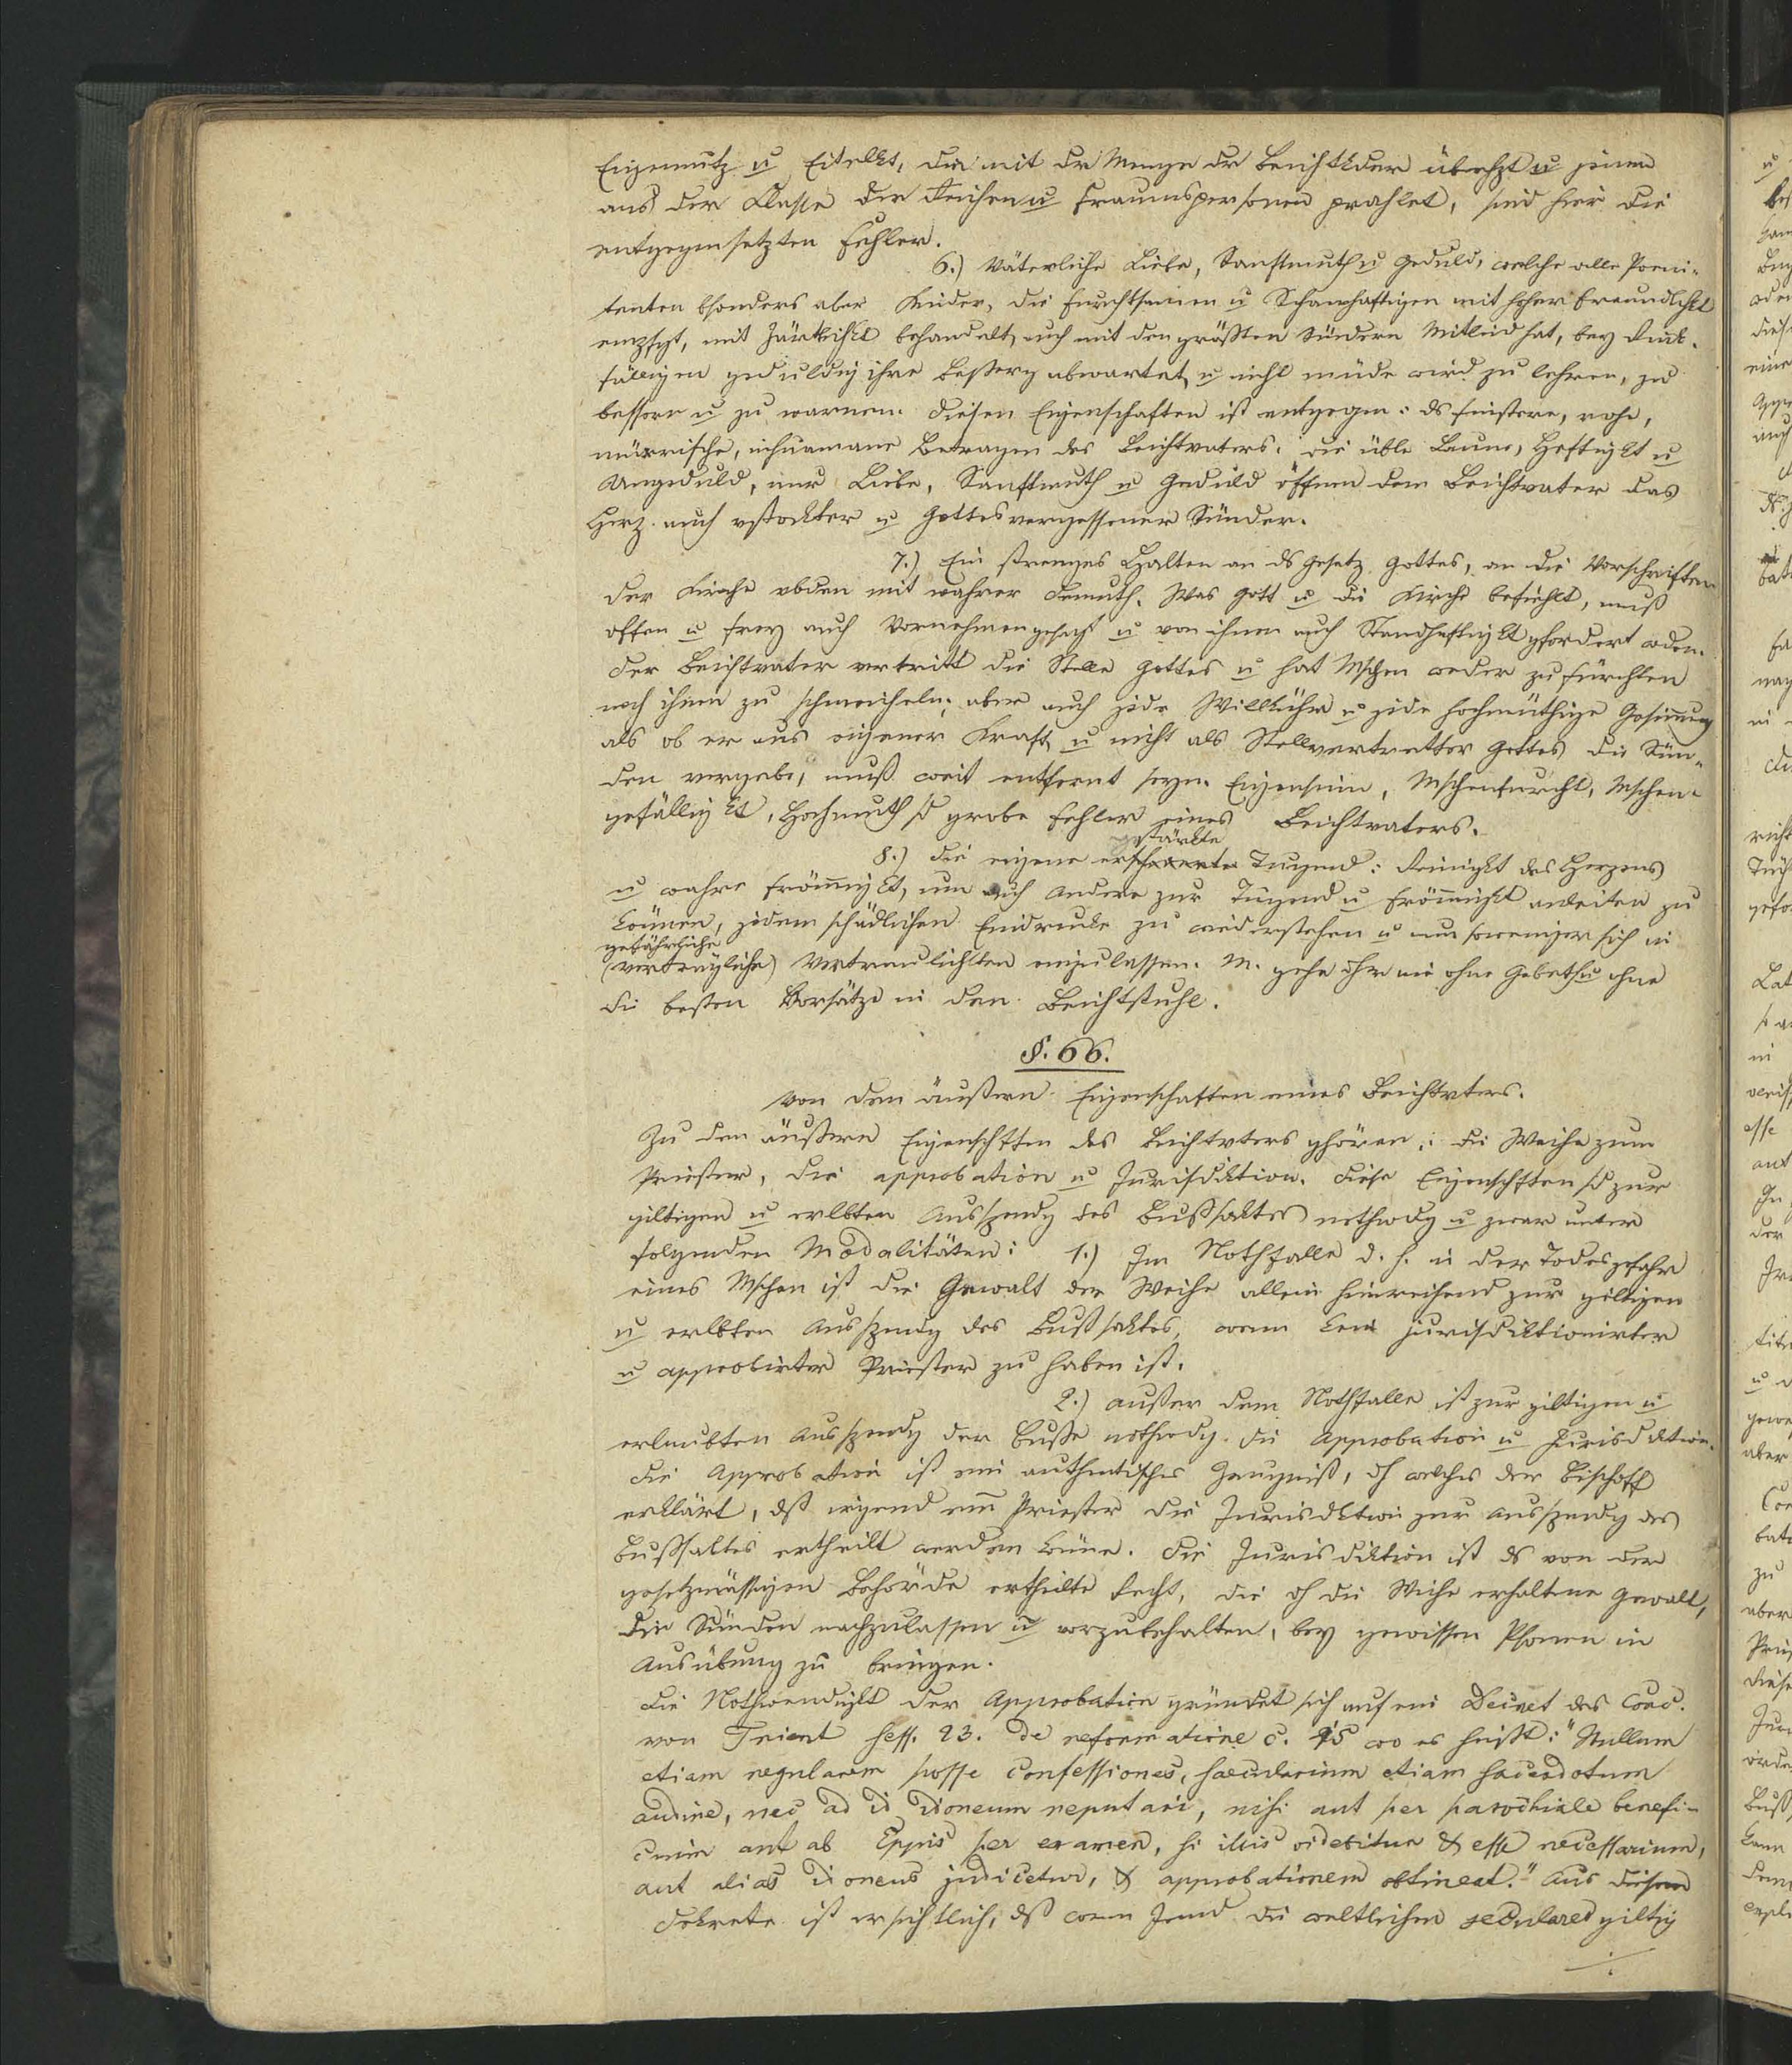 Eigennutz u Eitelkt, die mit der Menge der Beichtkder u jenen
aus der Klasse der Reichen u Frauenspersonen prahlet, sind hier die
entgegensetzten Fehler.
6.) Väterliche Liebe, Sanftmuth u Geduld, welche alle Poeni-
tenten bsonders aber Kinder, die furchtsamen u Schamhaftigen mit hoher Freundlichkt
empfgt, mit Zärtlichkt behandelt, auch mit den größten Sündern Mitleid hat, bey Rück-
fälligen geduldig ihre Besserg abwartet, u nicht müde wird zu lehren, zu
bessern u zu warnen. Diesen Eigenschaften ist entgegen: ds finstere, rohe,
mürrische, inhumane Betragen des Beichtvaters: die üble Laune, Heftigkt u
Ungeduld, nur Liebe, Sanftmuth u Geduld öffnen dem Beichtvater das
Herz auch vstockter u Gottesvergessener Sünder.
7.) Ein strenges Halten an ds Gesetz Gottes, an die Vorschriften
der Kirche vbden mit wahrer Demuth. Was Gott u die Kirche befiehlt, muß
offen u frey auch Vornehmen gesagt u von ihnen auch Standhaftigkt gfordert wden.
Der Beichtvater vertritt die Stelle Gottes u hat Mschen weder zu fürchten
noch ihnen zu schmeicheln; aber auch jede Willkühr u jede hochmüthige Gesinnung
als ob er aus eigener Kraft u nicht als Stellvertretter Gottes die Sün-
den vergebe, muß weit entfernt seyn. Eigensinn, Mschenfurcht, Mschen-
gefälligkt, Hochmuth sd grobe Fehler eines Beichtvaters.
gestärkte
8.) Die eigene Tugend: Reinigkt des Herzens
u wahre Frömmigkt, um auch Andere zur Tugend u Frömmigkt anleiten zu
können, jedem schädlichen Eindrucke zu widerstehen u um soweniger sich in
gefährliche
(verträgliche) Vertraulichkten einzulassen. M. gehe dhr nie ohne Gebeth u ohne
die besten Vorsätze in den Beichtstuhl.
§. 66.
Von den äußern Eigenschaften eines Beichtvters.
Zu den äußern Eigenschften des Beichtvters ghören: die Weihe zum
Priester, die approbation u Jurisdiktion. Diese Eigenschften sd zur
giltigen u erlbten Ausspendg des Bußsaktes nothwdg u zwar unter
folgenden Modalitäten: 1.) Im Nothfalle d. h. in der Todesgefahr
eines Mschen ist die Gewalt der Weihe allein hinreichend zur giltigen
u erlbten Ausspendg des Bußsaktes, wenn kein jurisdiktionirter
u approbirter Priester zu haben ist.
2.) Außer dem Nothfalle ist zur giltigen u
erlaubten Ausspendg der Buße nothwdg. die Approbation u Jurisdiktion.
Die Approbation ist ein authentisches Zeugniß, dh welches der Bischoff
erklärt, dß irgend ein Priester die Jurisdktion zur Ausspendg des
Bußsaktes ertheilt werden könne. Die Jurisdiktion ist ds von der
gesetzmässigen Behörde ertheilte Recht, die dh die Weihe erhaltene Gewalt,
die Sünden nachzulassen u vorzubehalten, bey gewissen Psonen in
Ausübung zu bringen.
Die Nothwendigkt der Approbation gründet sich auf ein Decret des Conc.
von Trient sess. 23. de reformatione c. 15 wo es heißt: "Nullum
etiam regularem posse confessiones, saecularium etiam sacerdotum
audire, nec ad id idoneum reputari, nisi aut per parochiale benefi-
cium aut ab Eppis per examen, si illis videbitur & esse necessarium,
aut alias idoneus judicetur, & approbationem obtineat." Aus diesem
Dekrete ist ersichtlich, dß wenn Jemd die weltlichen seculares giltig
./.